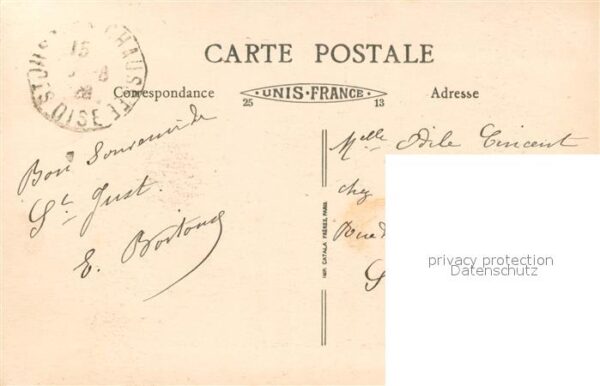 CARTE POSTALE
ST JUST EN CHAUSSÉE
OISE
15
Correspondance
25
UNIS-FRANCE
13
Adresse
Bon Souvenir de
St Just.
E.
IMP. CATALA FRÈRES, PARIS
Melle Odile Vincent
chez
Rue
S
privacy protection
Datenschutz